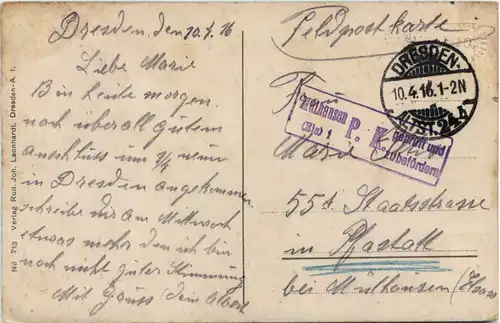 Dresden, den 10.4.16
Liebe Marie
Bin heute morgen
noch überall gutem
anschluss um 1/2 neun
in Dresden angekommen
schreibe dir am Mittwoch
etwas mehr den ich bin
noch nicht guter Stimmung
Mit Gruss dein Albert
No 713 Verlag Rud. Joh. Leonhardi, Dresden-A. 1.
Feldpostkarte
DRESDEN-
10.4.16.1-2N
ALTST. 24 A
Mülhausen
(Els) 1
P. K.
geprüft und
zu befördern
Frau
Marie
55 Staatsstrasse
in Pfastatt
bei Mülhausen (Elsass